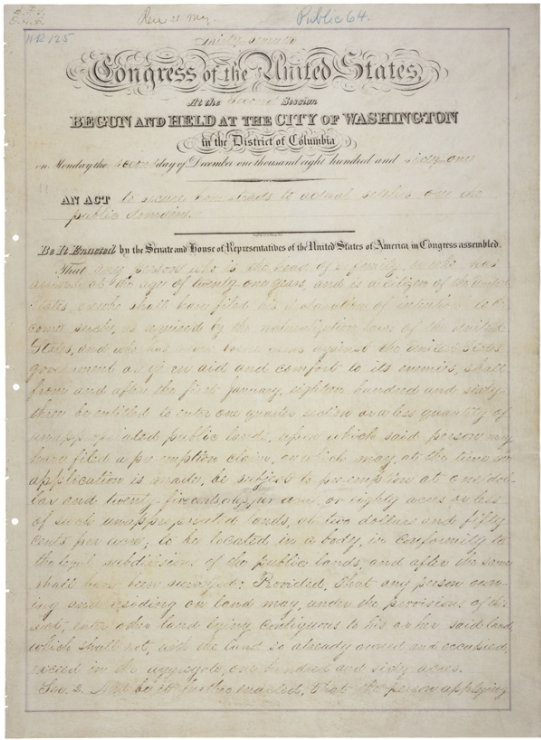 Public 64.
HR 125
Thirty-seventh
Congress of the United States,
At the Second Session
BEGUN AND HELD AT THE CITY OF WASHINGTON
in the District of Columbia
on Monday the second day of December one thousand eight hundred and sixty-one
AN ACT to secure homesteads to actual settlers on the
public domain.
Be It Enacted by the Senate and House of Representatives of the United States of America in Congress assembled.
That any person who is the head of a family, or who has
arrived at the age of twenty one years, and is a citizen of the United
States, or who shall have filed his declaration of intention to be-
come such, as required by the naturalization laws of the United
States, and who has never borne arms against the United States
government or given aid and comfort to its enemies, shall,
from and after the first January, eighteen hundred and sixty
three be entitled to enter one quarter section or a less quantity of
unappropriated public lands, upon which said person may
have filed a preemption claim, or which may, at the time the
application is made, be subject to preemption at one dol-
lar and twenty-five cents, or less, per acre; or eighty acres or less
of such unappropriated lands, at two dollars and fifty
cents per acre; to be located in a body, in conformity to
the legal subdivisions of the public lands, and after the same
shall have been surveyed: Provided, That any person own-
ing and residing on land may, under the provisions of this
act, enter other land lying contiguous to his or her said land,
which shall not, with the land so already owned and occupied,
exceed in the aggregate one hundred and sixty acres.
Sec. 2. And be it further enacted, That the person applying